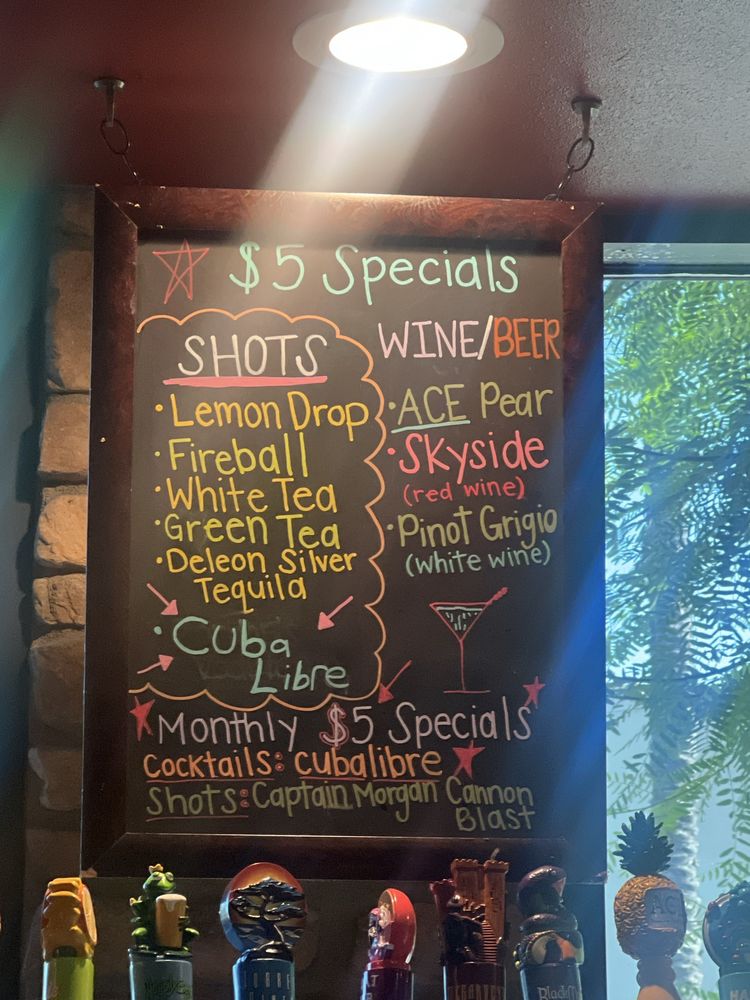 $5 Specials
SHOTS
• Lemon Drop
• Fireball
• White Tea
• Green Tea
• Deleon Silver
Tequila
• Cuba
Libre
WINE/BEER
• ACE Pear
• Skyside
(red wine)
• Pinot Grigio
(white wine)
Monthly $5 Specials
Cocktails: cubalibre
Shots: Captain Morgan Cannon
Blast